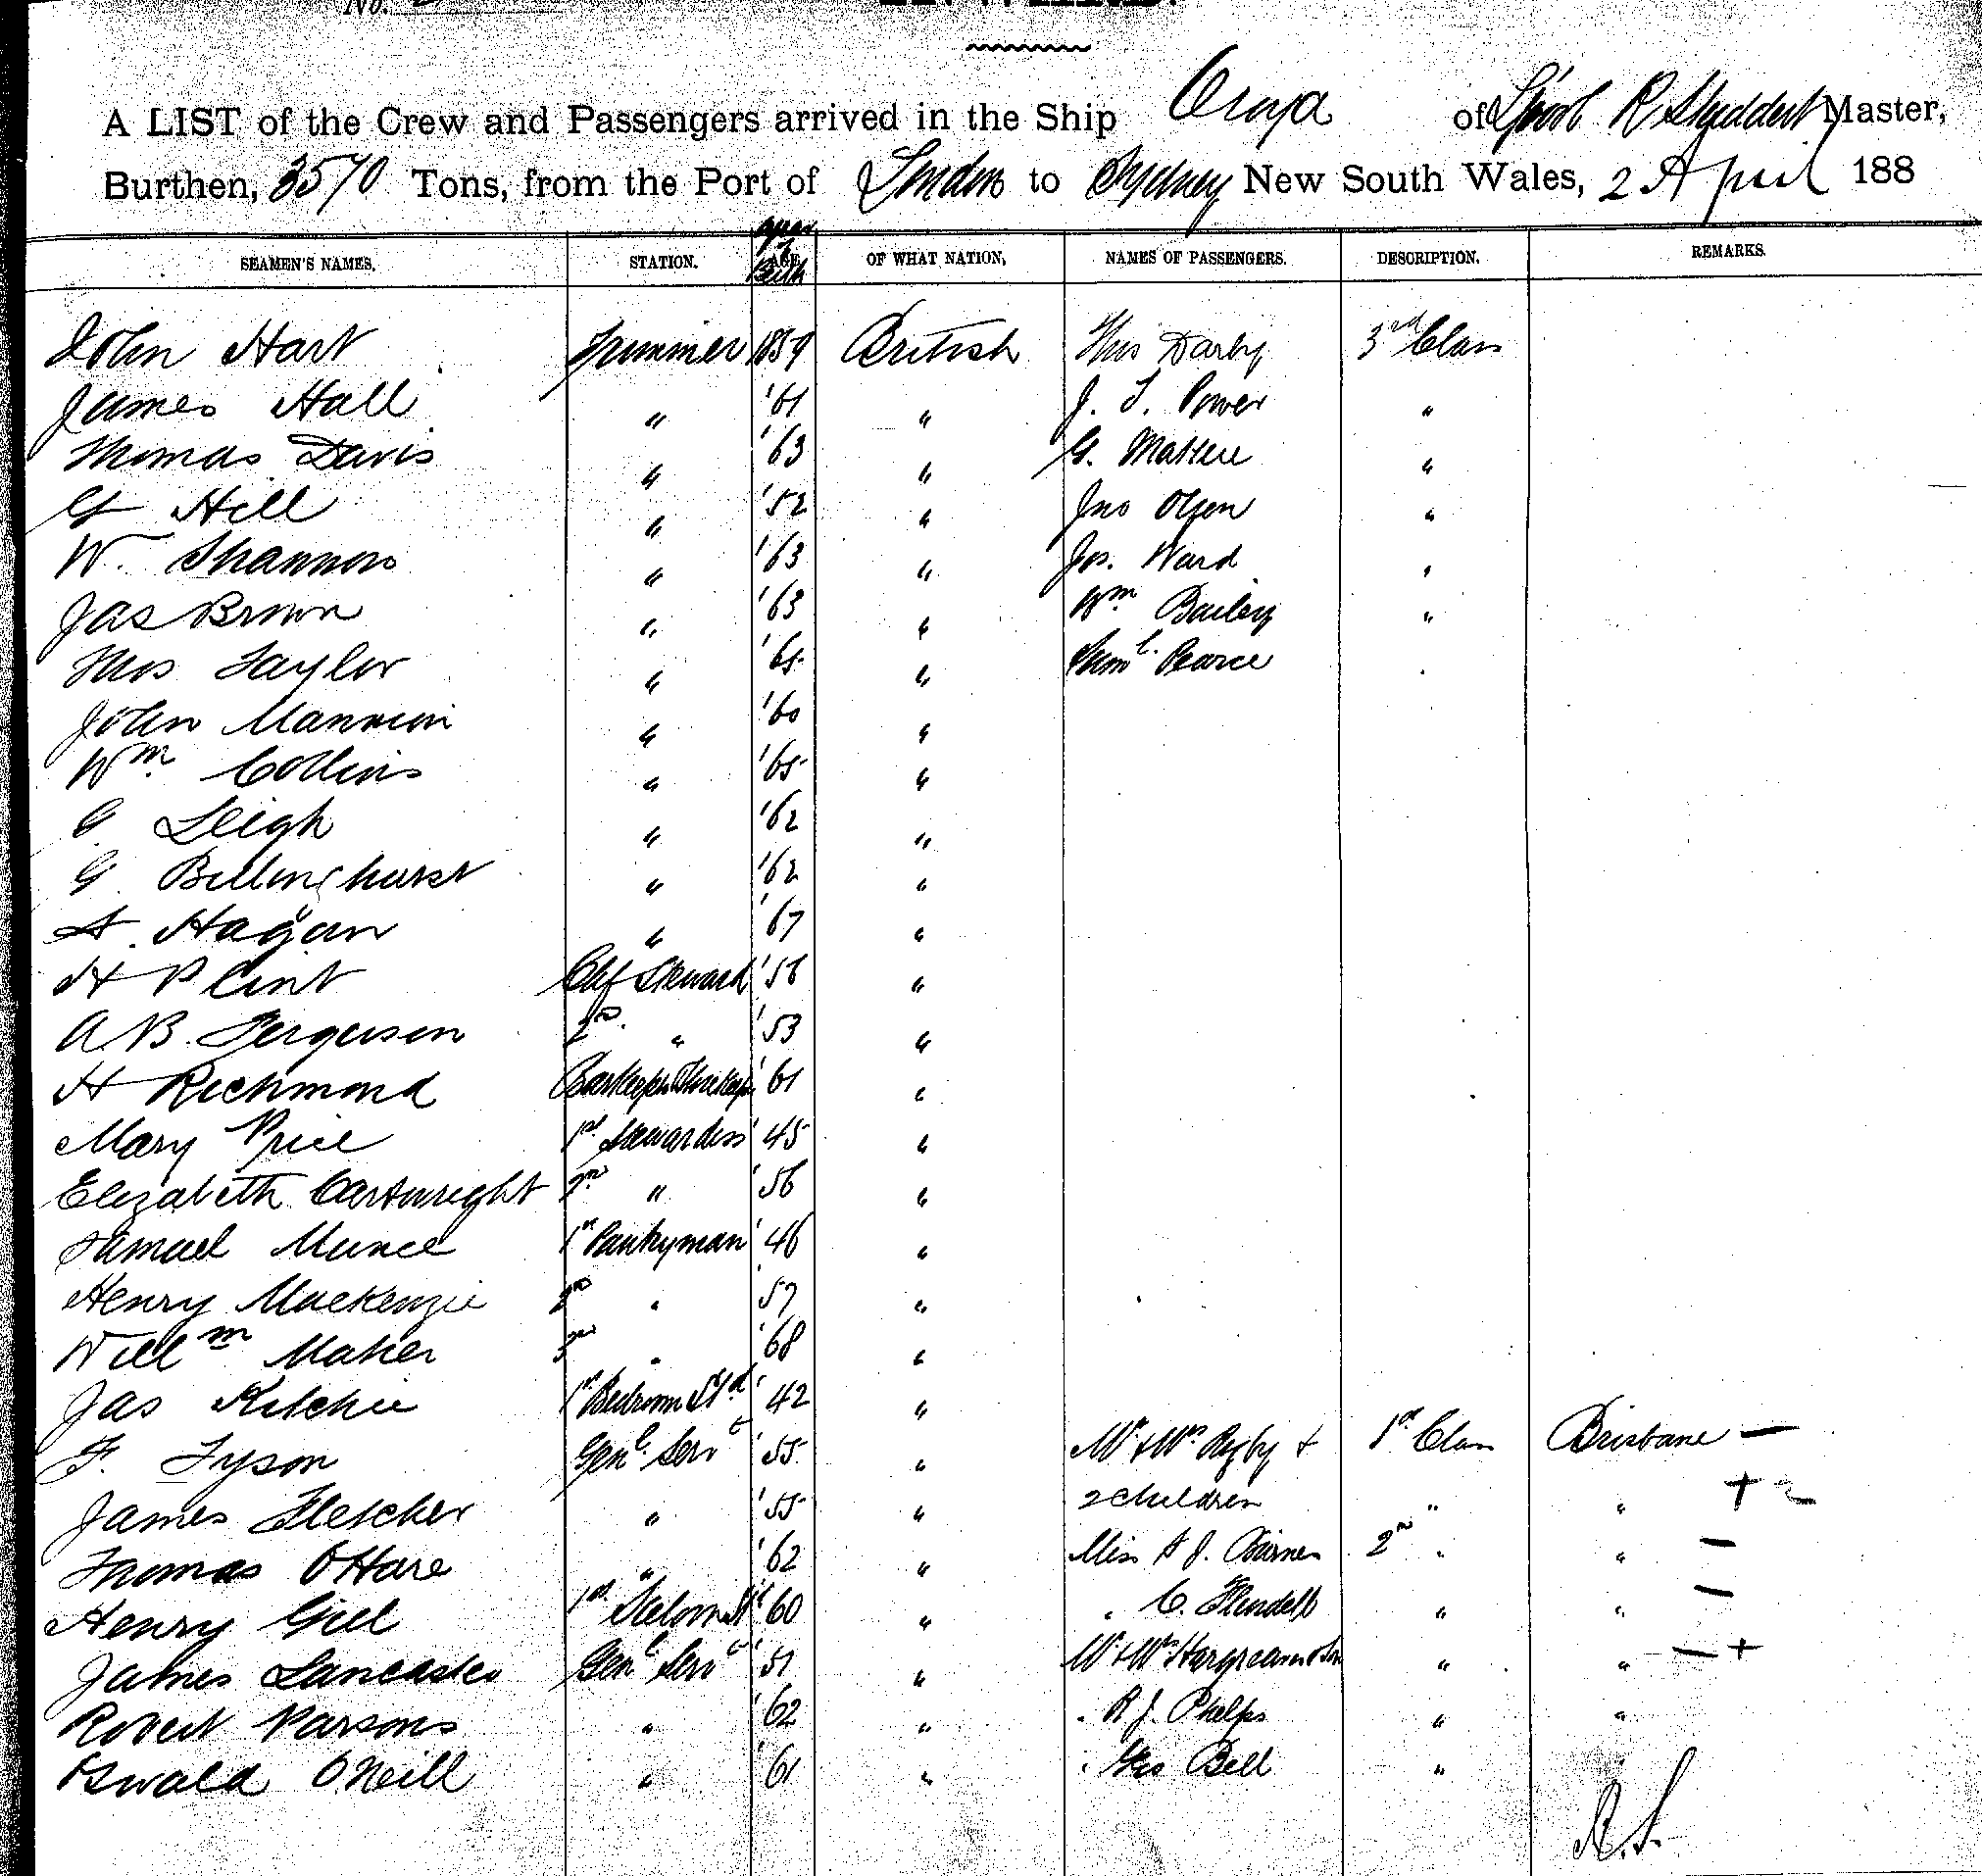 No.
A LIST of the Crew and Passengers arrived in the Ship Oroya of L'pool R. Studdert Master,
Burthen, 3570 Tons, from the Port of London to Sydney New South Wales, 2 April 188
SEAMEN'S NAMES. STATION. AGE year of Birth OF WHAT NATION, NAMES OF PASSENGERS. DESCRIPTION. REMARKS.
John Hart Trimmer 1859 British Thos Darby 3rd Class
James Hall " '61 " J. T. Power "
Thomas Davis " '63 " G. "
G Hill " '52 " Jno Olsen "
W. Shannon " '63 " Jos. Ward "
Jas Brown " '63 " Wm Bailey "
Thos Taylor " '65 " Saml. Pearce
John Mannion " '60 "
Wm. Collins " '65 "
G Leigh " '62 "
G. Billinghurst " '62 "
A. Hagan " '67 "
H Plint Chf Steward '56 "
A.B. Ferguson 2nd " '53 "
H Richmond Barkeeper '61 "
Mary Price 1st Stewardess '45 "
Elizabeth Cartwright 2nd " '56 "
Samuel Munce 1st Pantryman '46 "
Henry Mackenzie 2nd " '57 "
Willm Maher 3rd " '68 "
Jas Ritchie 1st Bedroom Std '42 "
F. Tyson Genl. Servt '55 " Mr & Mrs Rigby & 1st Class Brisbane —
James Fletcher " '55 " 2 children " " + 2
Thomas O'Hare " '62 " Miss A J. Barnes 2nd " " —
Henry Gill 1st Saloon St '60 " " C. " " —
James Lancaster Genl Servt '51 " Mr & Mrs " " — +
Robert Parsons " '62 " " R J. Phelps " "
Oswald O'Neill " '61 " " Geo Bell " "
R.S.